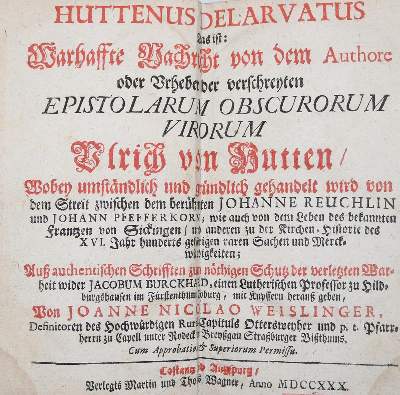 HUTTENUS DELARVATUS
Das ist:
Warhaffte Nachricht von dem Authore
oder Urheber der verschreyten
EPISTOLARUM OBSCURORUM
VIRORUM
Ulrich von Hutten /
Wobey umständlich und gründlich gehandelt wird von
dem Streit zwischen dem berühmten JOHANNE REUCHLIN
und JOHANN PFEFFERKORN; wie auch von dem Leben des bekannten
Frantzen von Sickingen / und anderen zu der Kirchen-Historie des
XVI. Jahr hunderts gehörigen raren Sachen und Merck-
würdigkeiten;
Auß authentischen Schrifften zu nöthigen Schutz der verletzten War-
heit wider JACOBUM BURCKHARD, einen Lutherischen Professor zu Hild-
burgshausen im Fürstenthum Coburg, mit Kupffern herauß geben,
Von JOANNE NICOLAO WEISLINGER,
Definitoren des Hochwürdigen Rural-Capituls Ottersweyher und p. t. Pfarr-
herrn zu Capell unter Rodeck Breyßgau Straßburger Bißthums.
Cum Approbatione & Superiorum Permissu.
Costantz Augspurg /
Verlegts Martin und Thomas Wagner, Anno MDCCXXX.